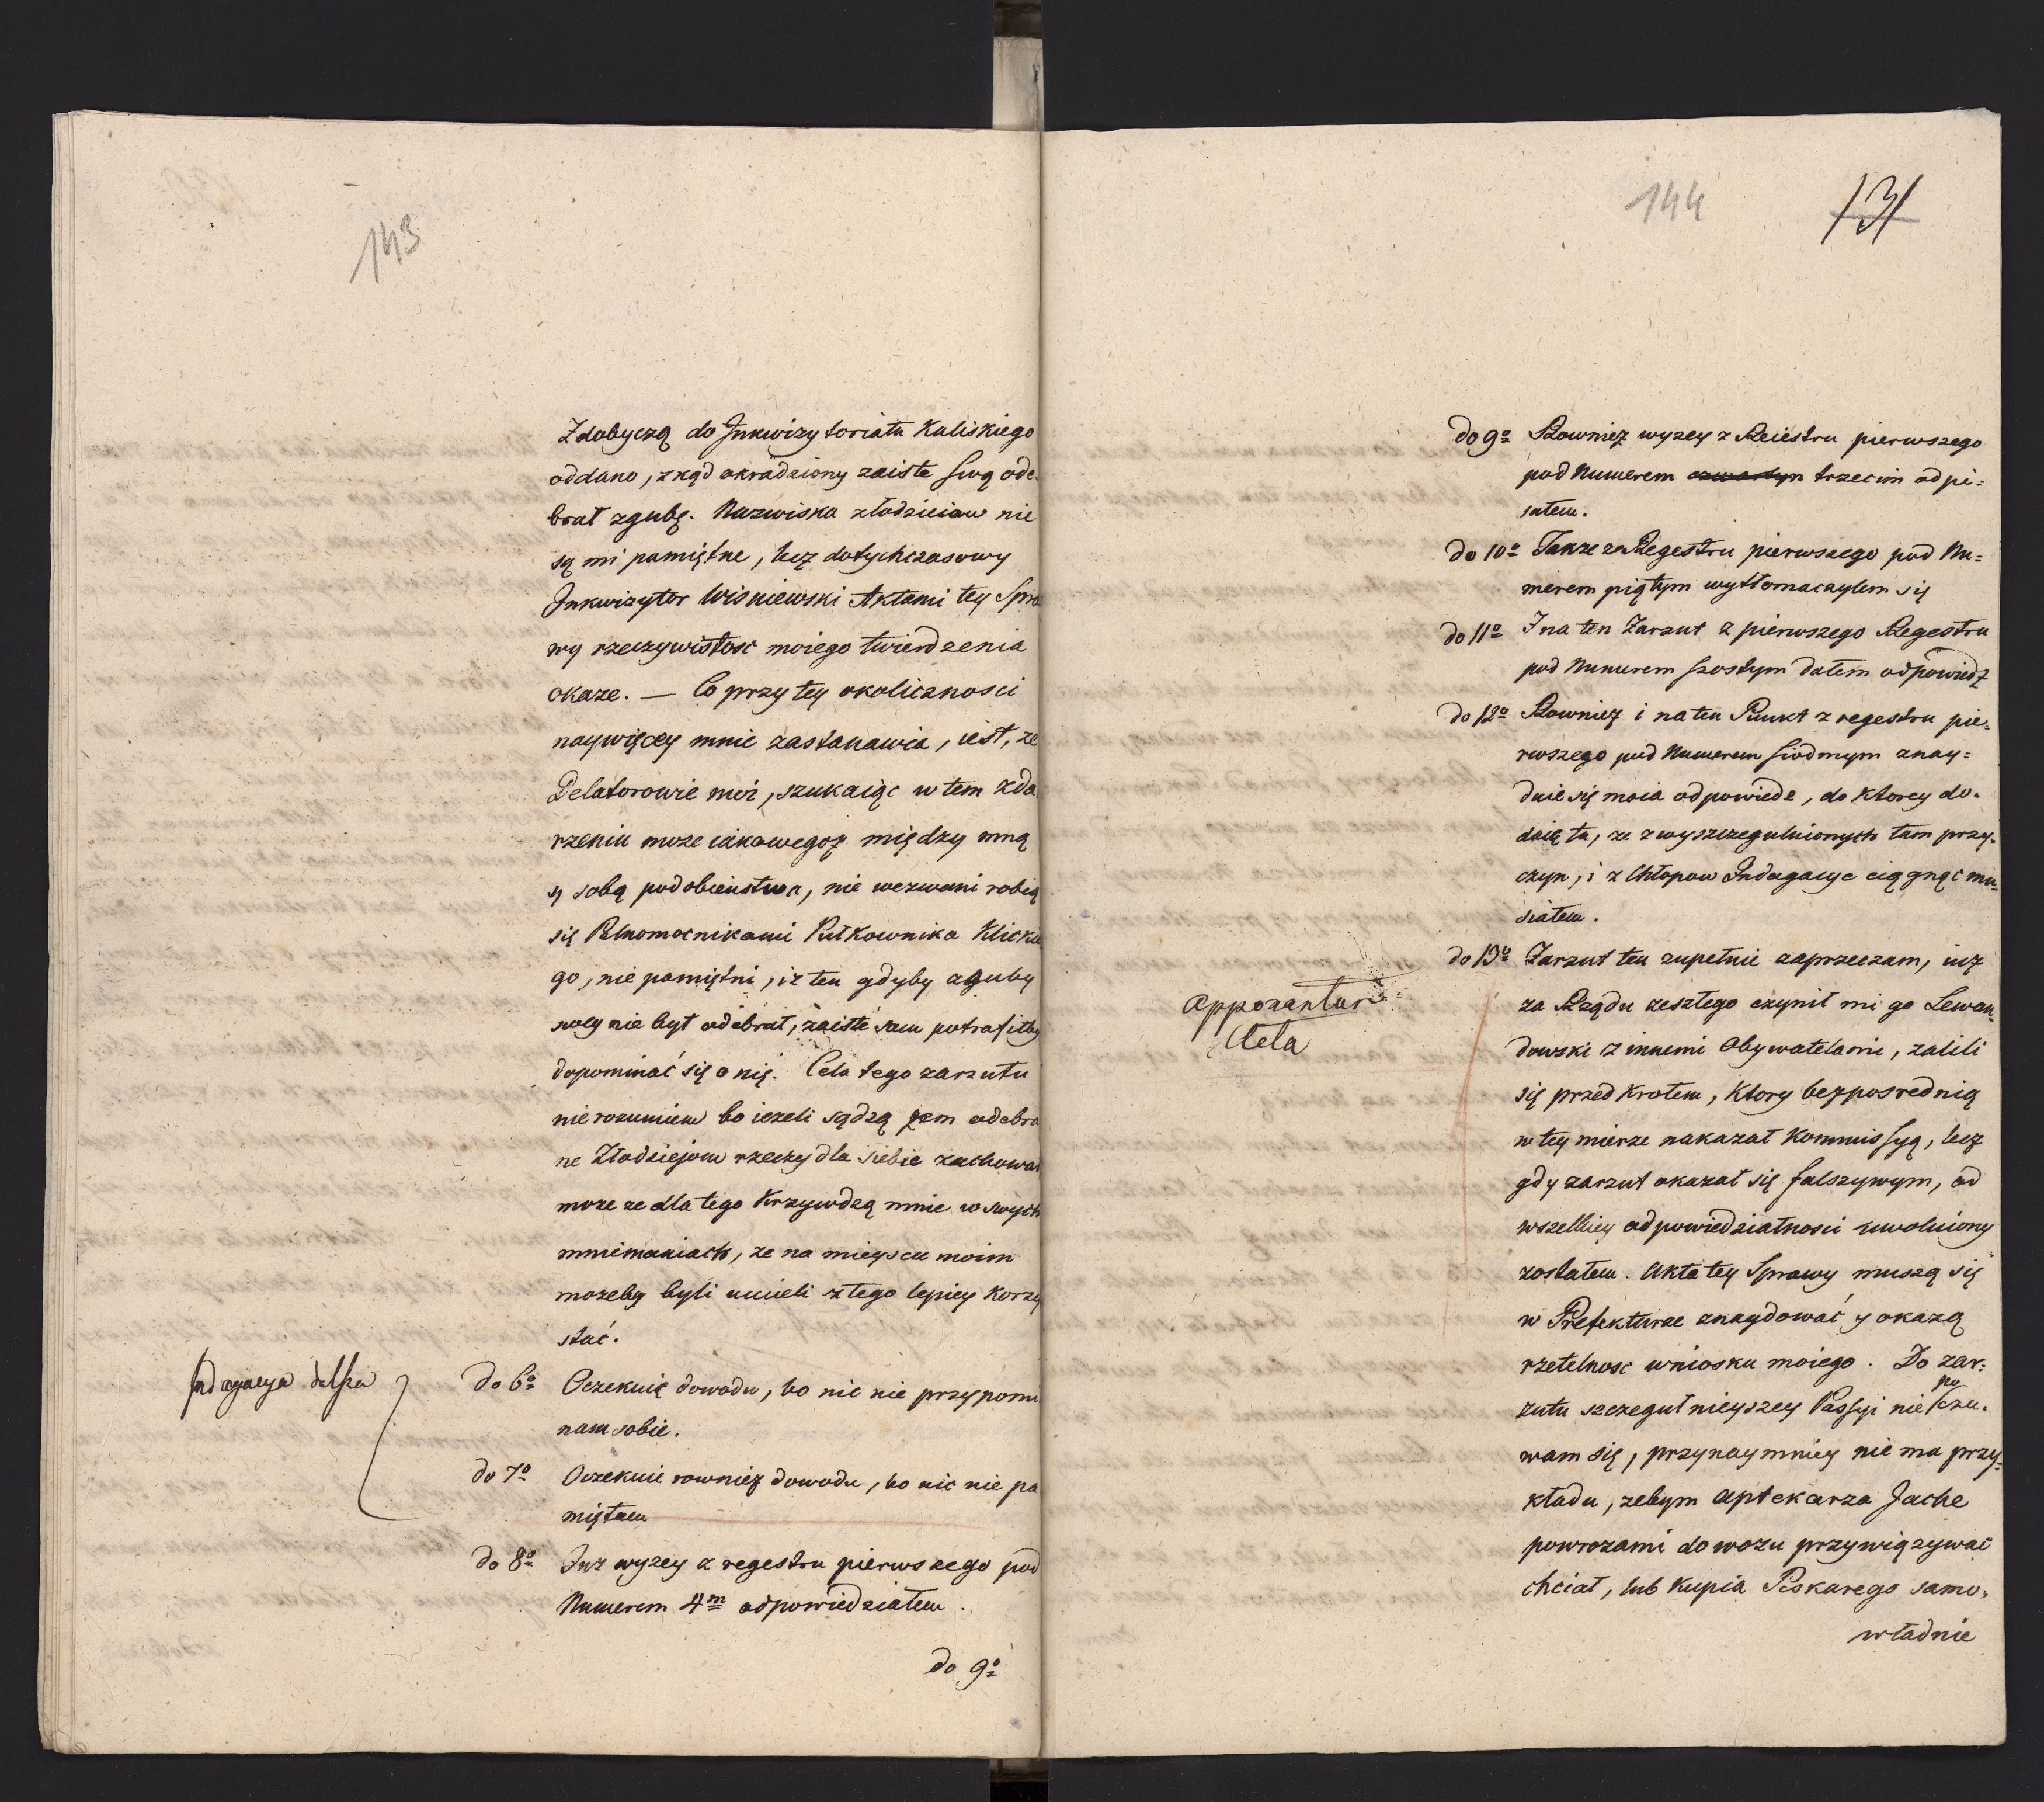 143
Zdobyczą do Inkwizytoriatu Kaliskiego
oddano, zkąd okradziony zaiste swą ode-
brał zgubę. Nazwiska złodzieiow nie
są mi pamiętne, lecz dotychczasowy
Inkwizytor Wisniewski Aktami tey Spra
wy rzeczywistosc moiego twierdzenia
okaze. — Co przy tey okolicznosci
naywięcey mnie zastanawia, iest, ze
Delatorowie moi, szukaiąc w tem zda
rzeniu moze iakowegoz między mną
y sobą podobieństwa, nie wezwani robią
się Pełnomocnikami Pułkownika Klickie
go, nie pamiętni, iz ten gdyby zguby
swey nie był odebrał, zaiste sam potrafiłby
dopominać się o nię. Celu tego zarzutu
nie rozumiem bo iezeli sądzą zem odebra
ne Złodziejom rzeczy dla siebie zachował
moze ze dla tego Krzywdzą mnie w swych
mniemaniach, ze na mieyscu moim
mozeby byli umieli z tego lepiey korzy
stać.
Indagacya dalsza
do 6o Oczekuię dowodu, bo nic nie przypomi
nam sobie.
do 7o Oczekuie rowniez dowodu, bo nic nie pa
miętam
do 8o Juz wyzey z regestru pierwszego pod
Numerem 4m odpowiedziałem.
do 9o
144 131
do 9o Rowniez wyzey z Reiestru pierwszego
pod Numerem czwartym trzecim odpi=
sałem.
do 10o Takze z Regestru pierwszego pod Nu=
merem piątym wytłomaczyłem się
do 11o I na ten Zarzut z pierwszego Regestru
pod Numerem szostym dałem odpowiedz
do 12o Rowniez i na ten Punkt z regestru pie-
rwszego pod Numerem siodmym znay=
duie się moia odpowiedz, do ktorey do-
daię tu, ze z wyszczegulnionych tam przy-
czyn, i z Chłopow Indagacye ciągnąc mu-
siałem.
do 13o Zarzut ten zupełnie zaprzeczam, iuz
za Rządu zeszłego czynił mi go Lewan-
dowski z innemi Obywatelami, zalili
się przed Krotem, ktory bezposrednią
w tey mierze nakazał Kommissyą, lecz
gdy zarzut okazał się falszywym, od
wszelkiey odpowiedziałnosci uwolniony
zostałem. Akta tey Sprawy muszą się
w Prefekturze znaydować y okazą
rzetelnosc wniosku moiego. Do zar=
zutu szczegulnieyszey Passyi nie poczu-
wam się, przynaymniey nie ma przy-
kładu, zebym aptekarza Jache
powrozami do wozu przywiązywać
chciał, lub Kupia Piskarego samo-
władnie
Apponantur
Acta